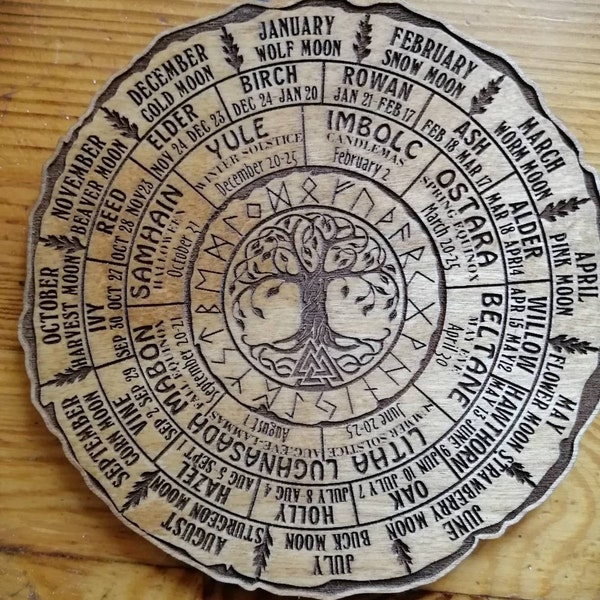 JANUARY
WOLF MOON
FEBRUARY
SNOW MOON
MARCH
WORM MOON
APRIL
PINK MOON
MAY
FLOWER MOON
JUNE
STRAWBERRY MOON
JULY
BUCK MOON
AUGUST
STURGEON MOON
SEPTEMBER
CORN MOON
OCTOBER
HARVEST MOON
NOVEMBER
BEAVER MOON
DECEMBER
COLD MOON
BIRCH
DEC 24-JAN 20
ROWAN
JAN 21-FEB 17
ASH
FEB 18 MAR 17
ALDER
MAR 18 APR14
WILLOW
APR 15 MAY12
HAWTHORN
MAY 13 JUNE 9
OAK
JUN 10 JULY 7
HOLLY
JULY 8 AUG 4
HAZEL
AUG 5 SEPT
VINE
SEP 2 SEP 29
IVY
SEP 30 OCT 27
REED
OCT 28 NOV23
ELDER
NOV 24 DEC 23
YULE
WINTER SOLSTICE
December 20-25
IMBOLC
CANDLEMAS
February 2
OSTARA
SPRING EQUINOX
March 20-25
BELTANE
MAY EVE
April 30
LITHA
SUMMER SOLSTICE
June 20-25
LUGHNASADA
AUG.EVE-LAMMAS
August 1
MABON
FALL EQUINOX
September 20-21
SAMHAIN
HALLOWEEN
October 21